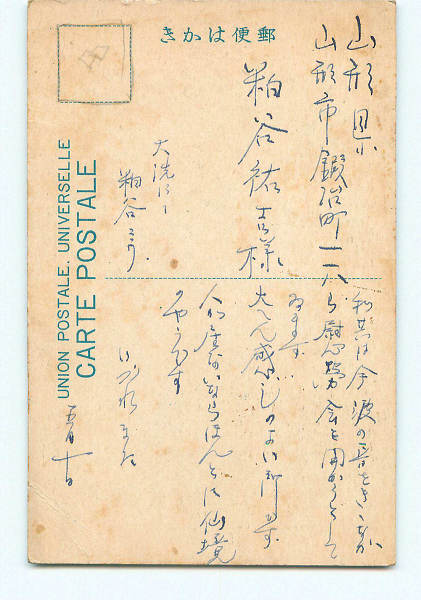 郵便はかき
UNION POSTALE UNIVERSELLE
CARTE POSTALE
山形県
山形市鍛冶町一一八
粕谷祐吉様
大洗にて
粕谷
私共は今波の音をきゝなが
ら慰労会を開かうとして
ゐます
大へん感じのよい所です
人が居ないならほんとに仙境
のやうです
いづれまた
五月十日